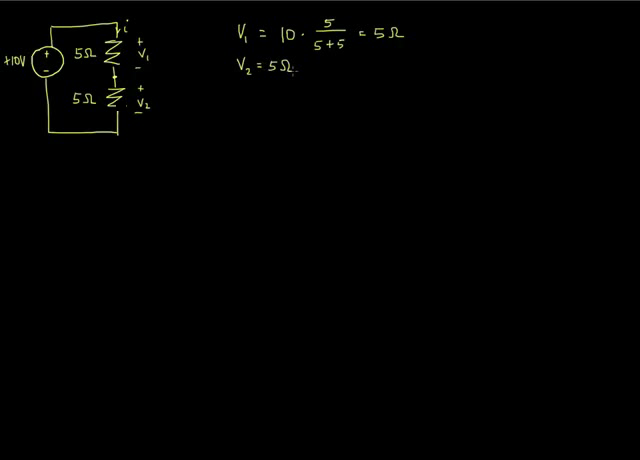 i
+
+10V
+
-
5Ω
V₁
-
5Ω
+
V₂
-
V₁ = 10 · 5/(5+5) = 5Ω
V₂ = 5Ω